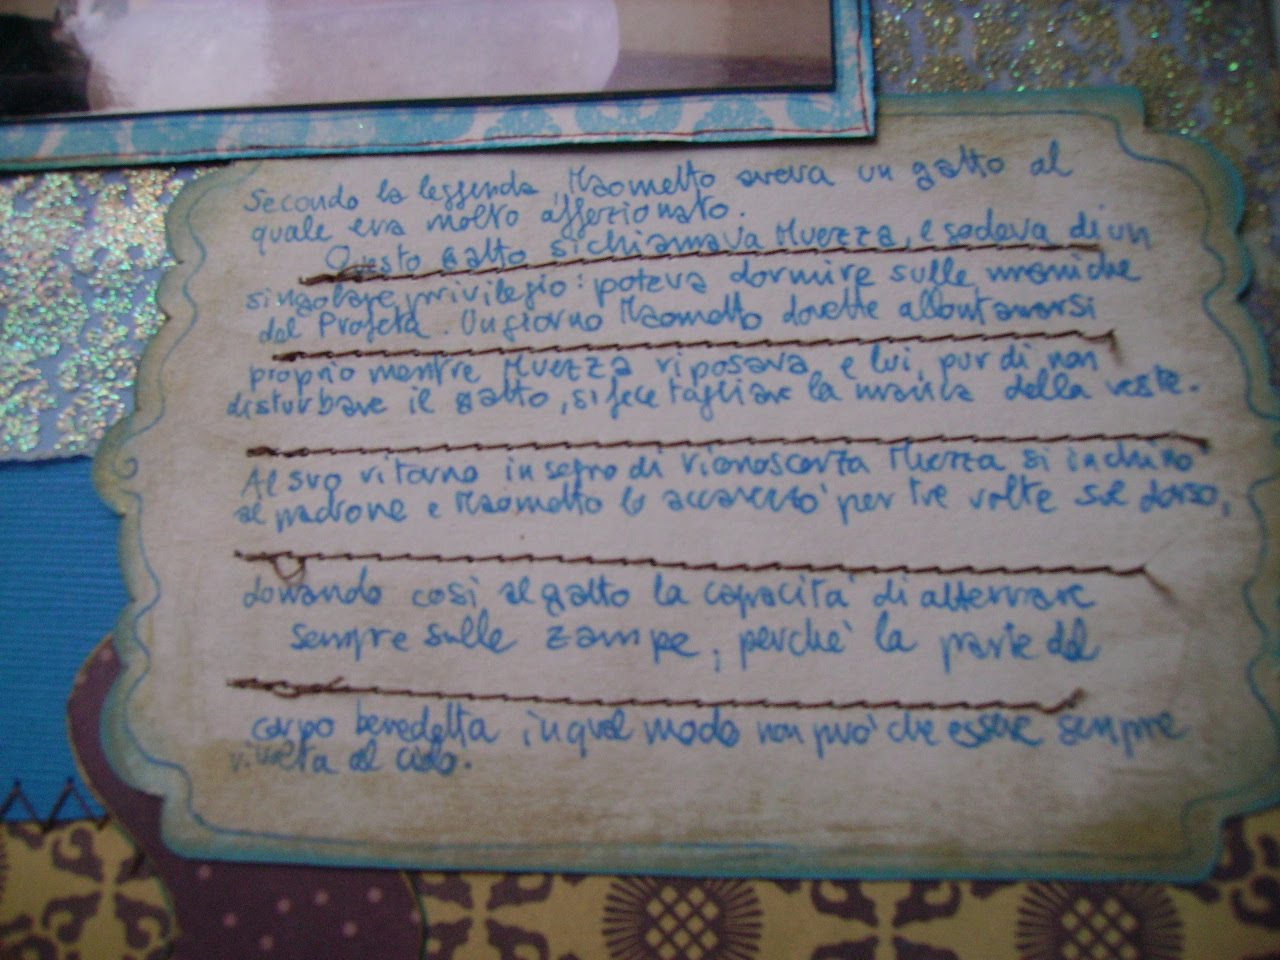 Secondo la leggenda, Maometto aveva un gatto al
quale era molto affezionato.
Questo gatto si chiamava Muezza, e godeva di un
singolare privilegio: poteva dormire sulle maniche
del Profeta. Un giorno Maometto dovette allontanarsi
proprio mentre Muezza riposava, e lui, pur di non
disturbare il gatto, si fece tagliare la manica della veste.
Al suo ritorno in segno di riconoscenza Muezza si inchinò
al padrone e Maometto lo accarezzò per tre volte sul dorso,
donando così al gatto la capacità di atterrare
sempre sulle zampe, perchè la parte del
corpo benedetta in quel modo non può che essere sempre
rivolta al cielo.